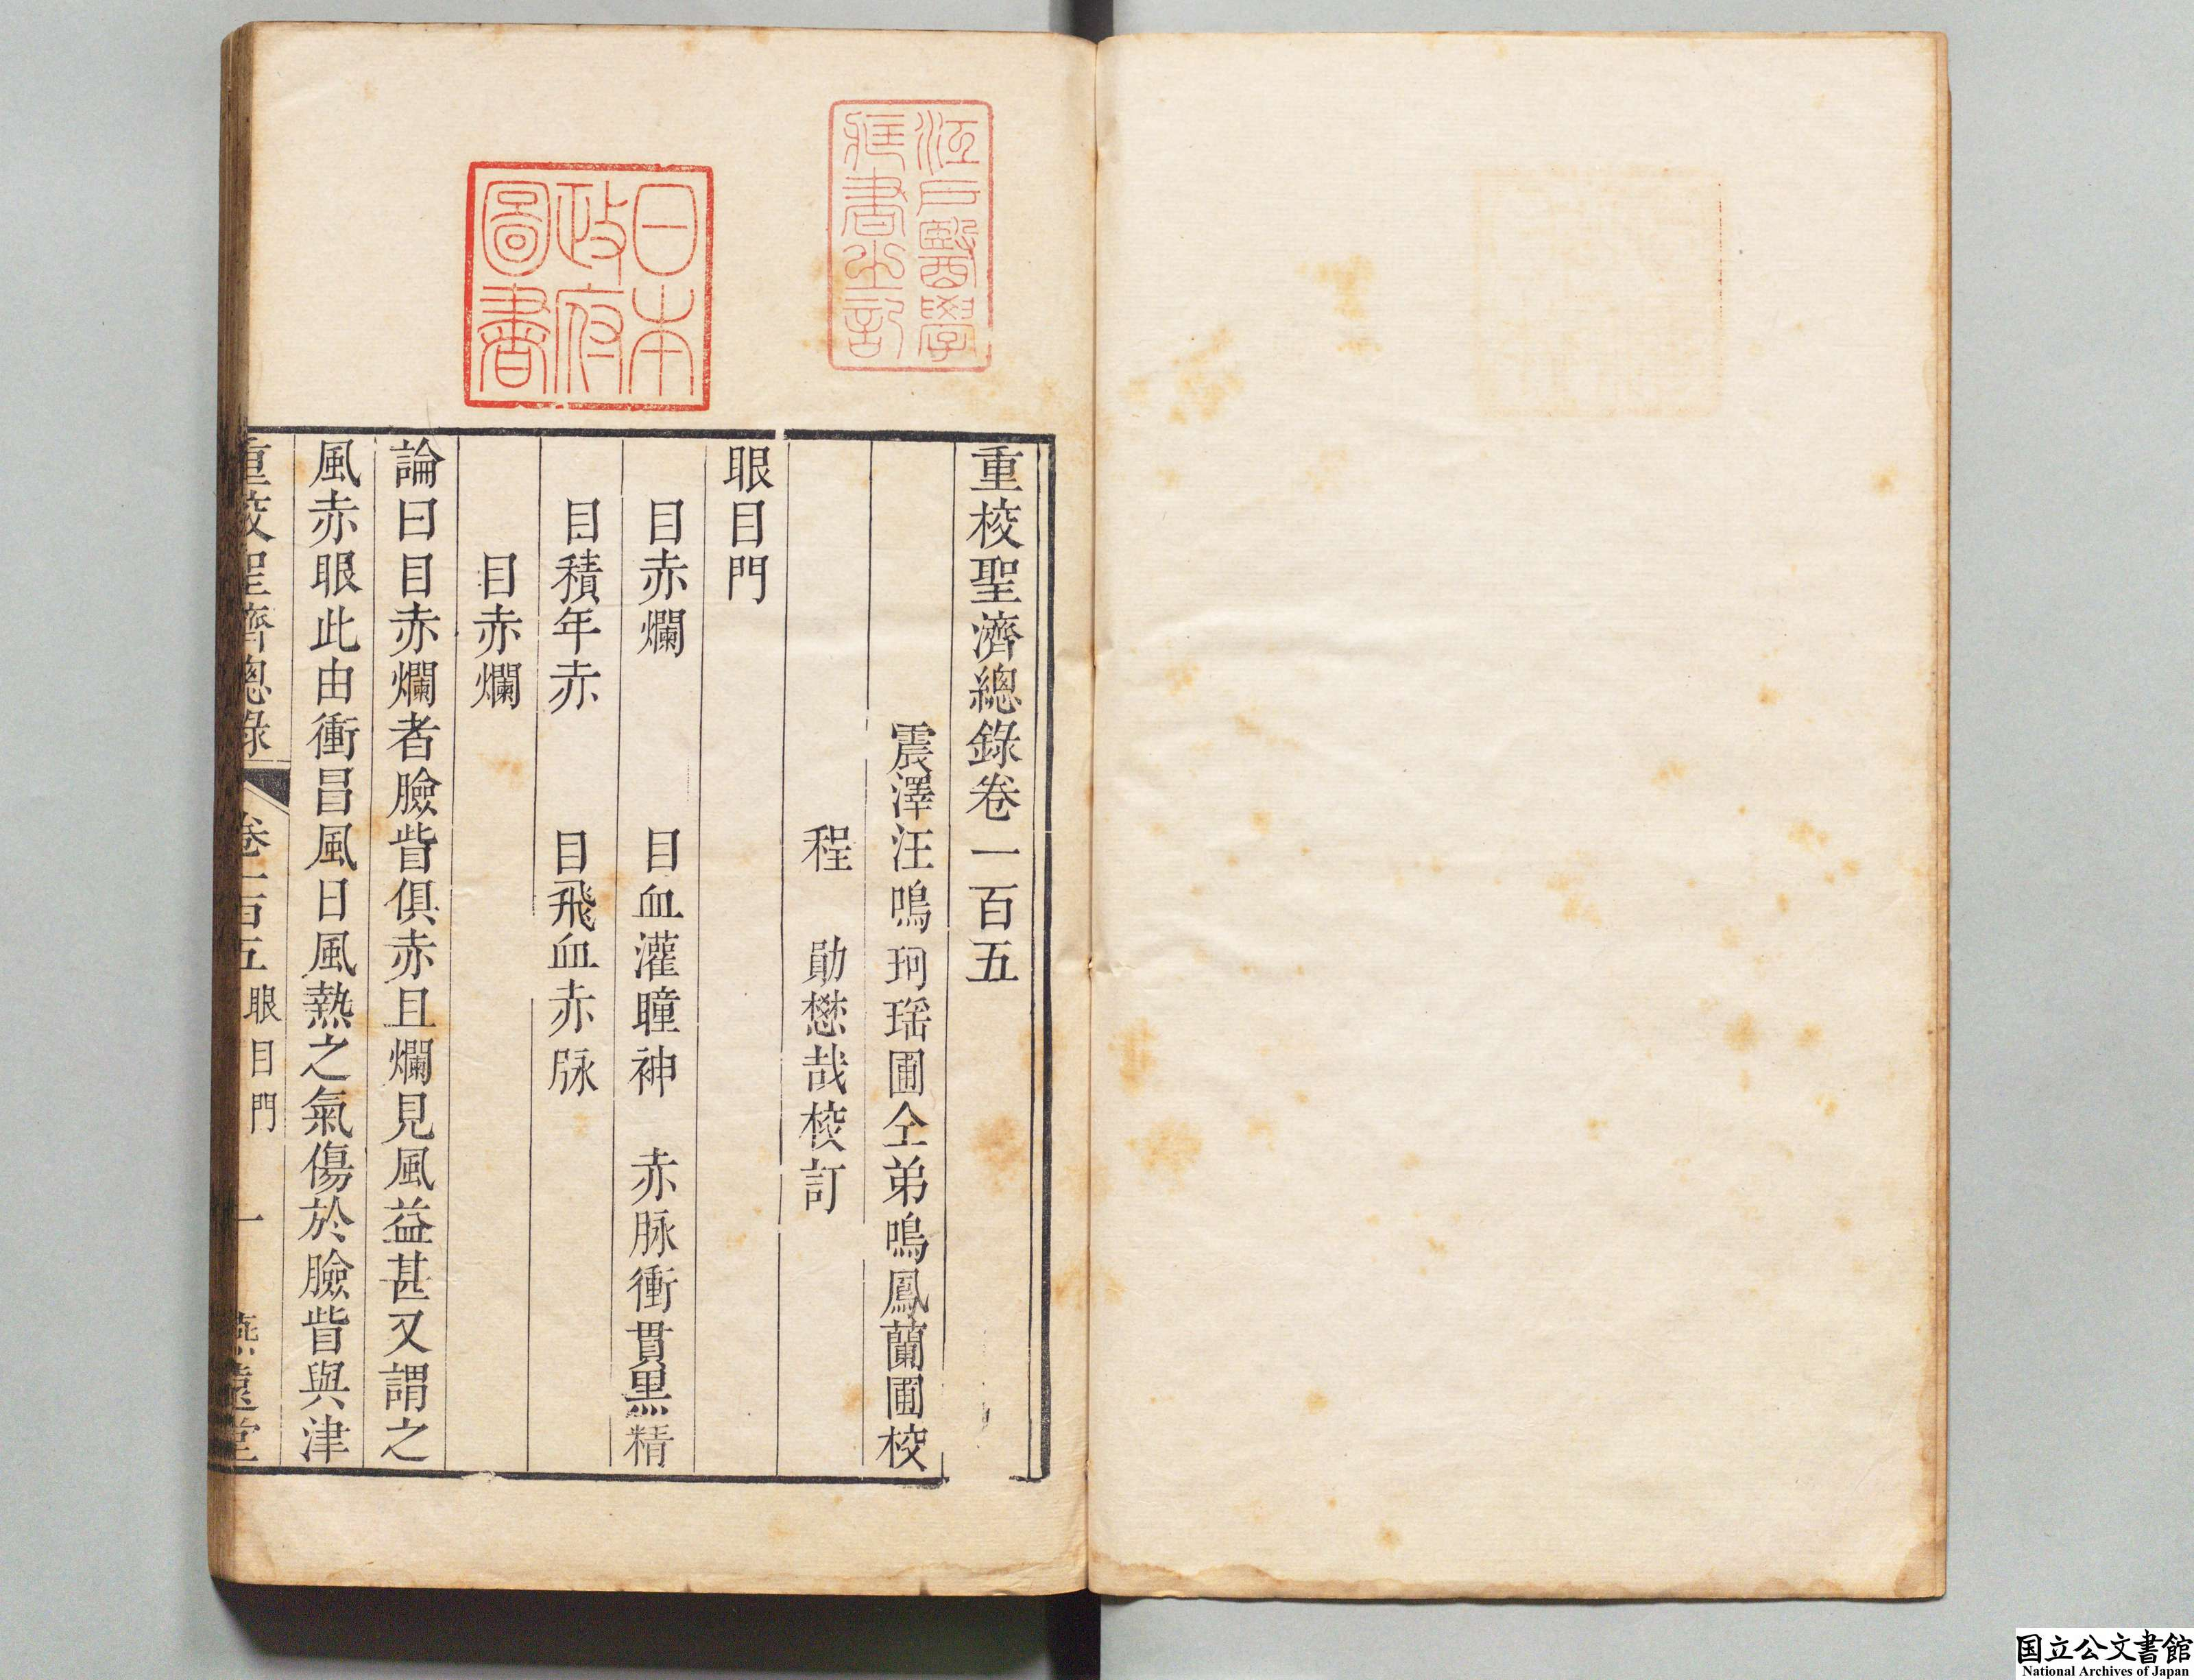 重校聖濟總錄卷一百五
震澤汪鳴珂瑶圃仝弟鳴鳳蘭圃校
程　勛懋哉校訂
眼目門
目赤爛　目血灌瞳神　赤脉衝貫黑精
目積年赤　目飛血赤脉
目赤爛
論曰目赤爛者臉眥俱赤且爛見風益甚又謂之
風赤眼此由衝冒風日風熱之氣傷於臉眥與津
重校聖濟總錄　卷一百五眼目門　一　燕遠堂
江戶醫學
藏書之記
日本
政府
圖書
国立公文書館
National Archives of Japan